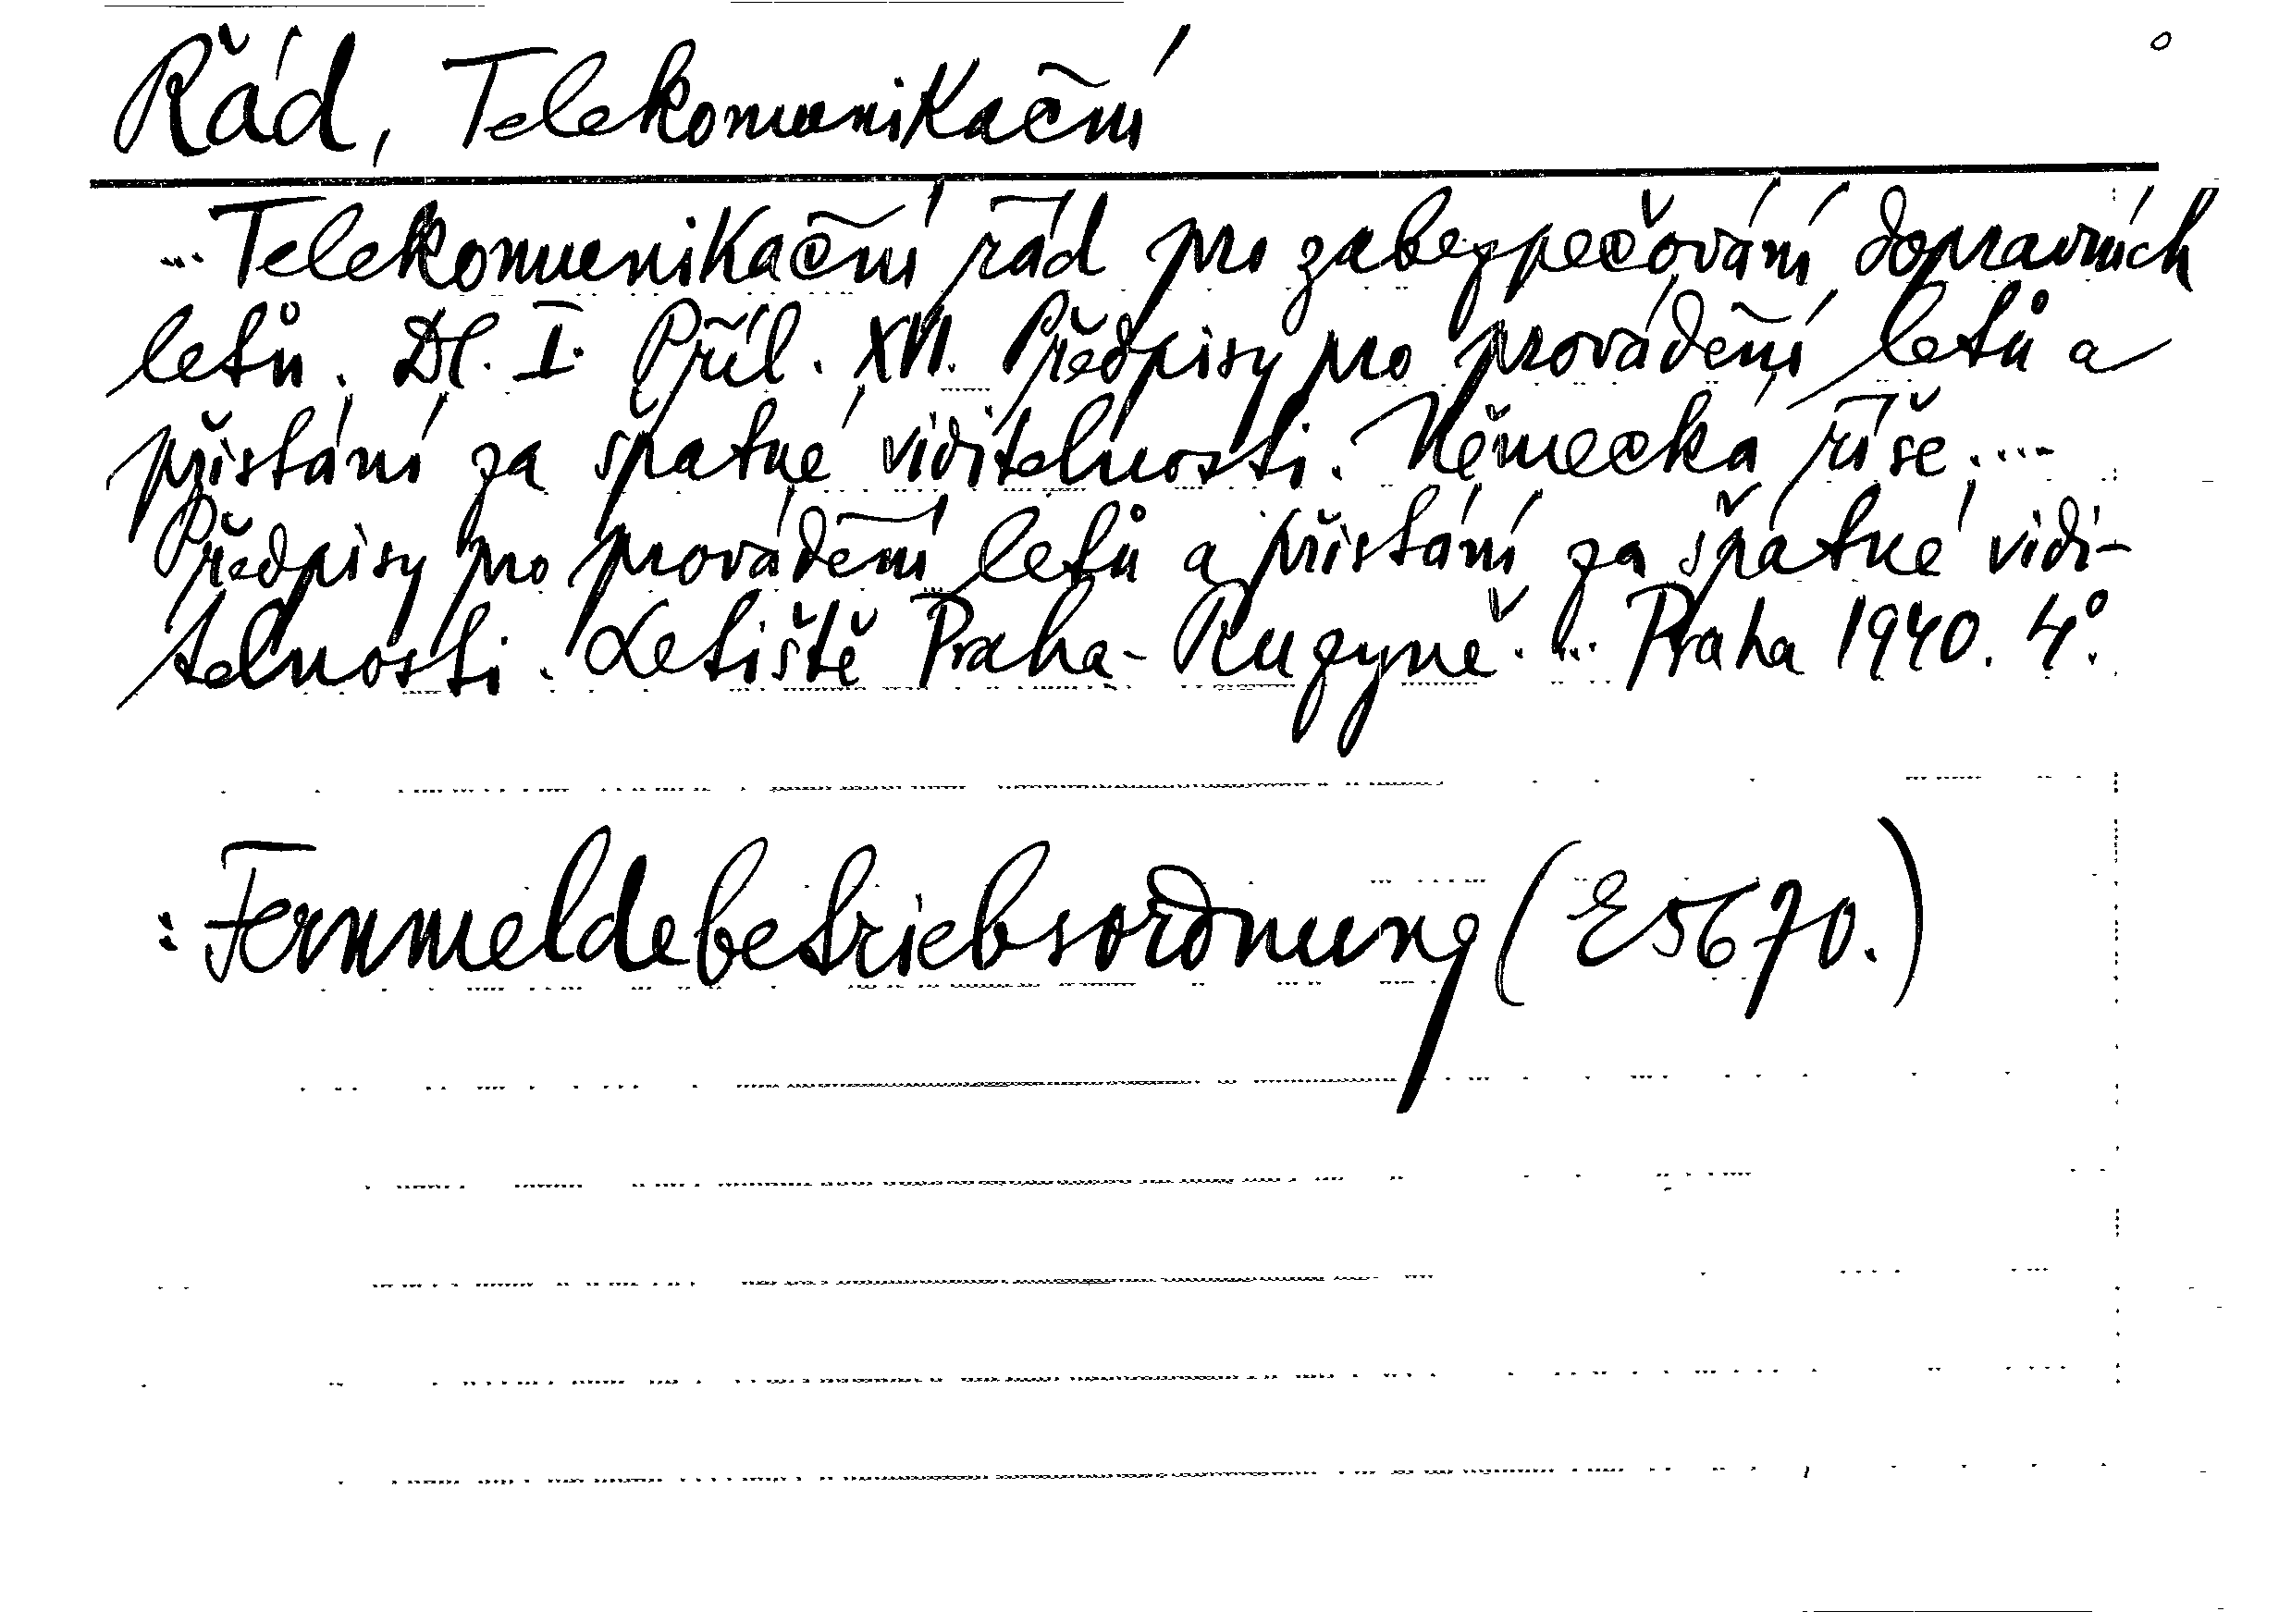 Řád, Telekomunikační
... Telekomunikační řád pro zabezpečování dopravních
letů. Dl. I. Příl. XVI. Předpisy pro provádění letů a
přistání za špatné viditelnosti. Německá říše. ...
Předpisy pro provádění letů a přistání za špatné vidi-
telnosti. Letiště Praha-Ruzyně. ... Praha 1940. 4°.
: Fernmeldebetriebsordnung (E 5670.)